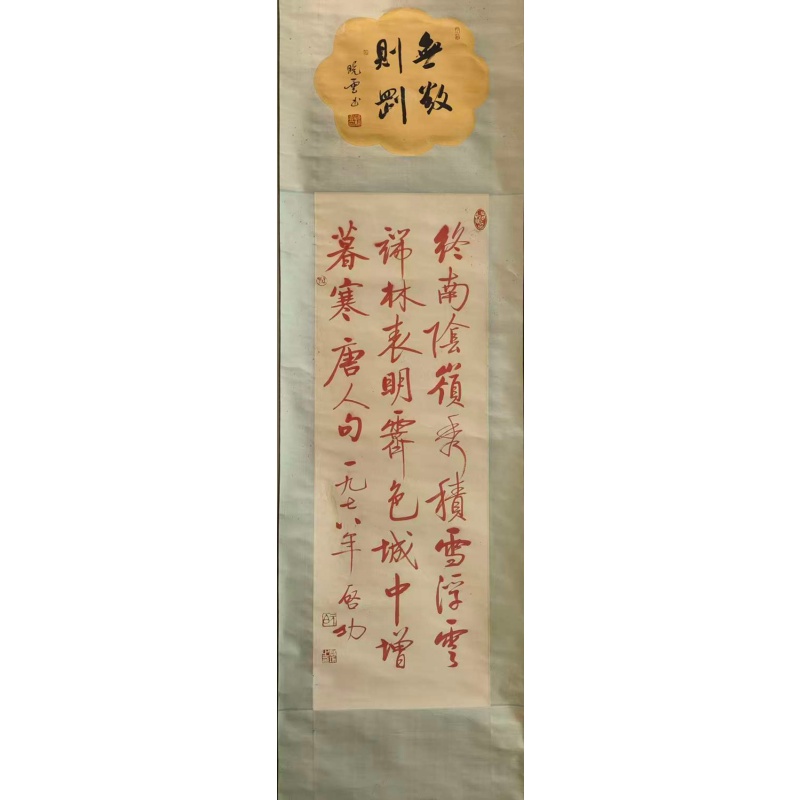 無欲
則剛
終南陰嶺秀積雪浮雲
端林表明霽色城中增
暮寒唐人句一九七八年启功